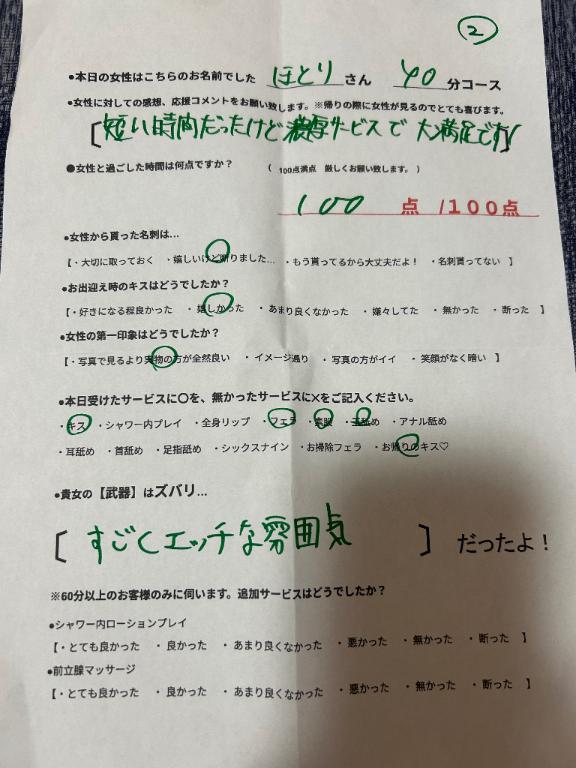 ②
●本日の女性はこちらのお名前でした ほとり さん 40 分コース
●女性に対しての感想、応援コメントをお願い致します。※帰りの際に女性が見るのでとても喜びます。
[短い時間だったけど濃厚サービスで大満足です!]
●女性と過ごした時間は何点ですか? ( 100点満点 厳しくお願い致します。 )
100 点 /100点
●女性から貰った名刺は…
【・大切に取っておく ・嬉しいけど断りました… ・もう貰ってるから大丈夫だよ! ・名刺貰ってない 】
●お出迎え時のキスはどうでしたか?
【・好きになる程良かった ・嬉しかった ・あまり良くなかった ・嫌々してた ・無かった ・断った 】
●女性の第一印象はどうでしたか?
【・写真で見るより実物の方が全然良い ・イメージ通り ・写真の方がイイ ・笑顔がなく暗い 】
●本日受けたサービスに〇を、無かったサービスに×をご記入ください。
・キス ・シャワー内プレイ ・全身リップ ・フェラ ・素股 ・玉舐め ・アナル舐め
・耳舐め ・首舐め ・足指舐め ・シックスナイン ・お掃除フェラ ・お帰りのキス♡
●貴女の【武器】はズバリ…
[すごくエッチな雰囲気] だったよ!
※60分以上のお客様のみに伺います。追加サービスはどうでしたか?
●シャワー内ローションプレイ
【・とても良かった ・良かった ・あまり良くなかった ・悪かった ・無かった ・断った 】
●前立腺マッサージ
【・とても良かった ・良かった ・あまり良くなかった ・悪かった ・無かった ・断った 】